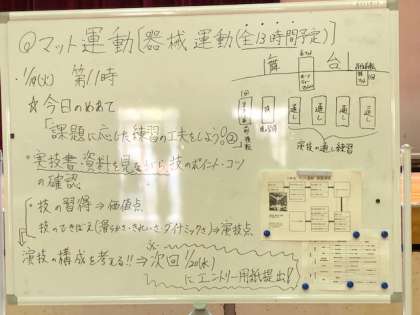 ◎マット運動[器械運動(全13時間予定)]
・1/19(火) 第11時
☆今日のめあて
「課題に応じた練習の工夫をしよう!②」
・実技書・資料を見ながら、技のポイント・コツ
の確認
・技の習得⇒価値点
・技のできばえ(滑らかさ・きれいさ・ダイナミックさ)⇒演技点
演技の構成を考える!!⇒次回 1/20(水)
にエントリー用紙提出!
舞 台
技 通し 通し 通し 通し
演技の通し練習